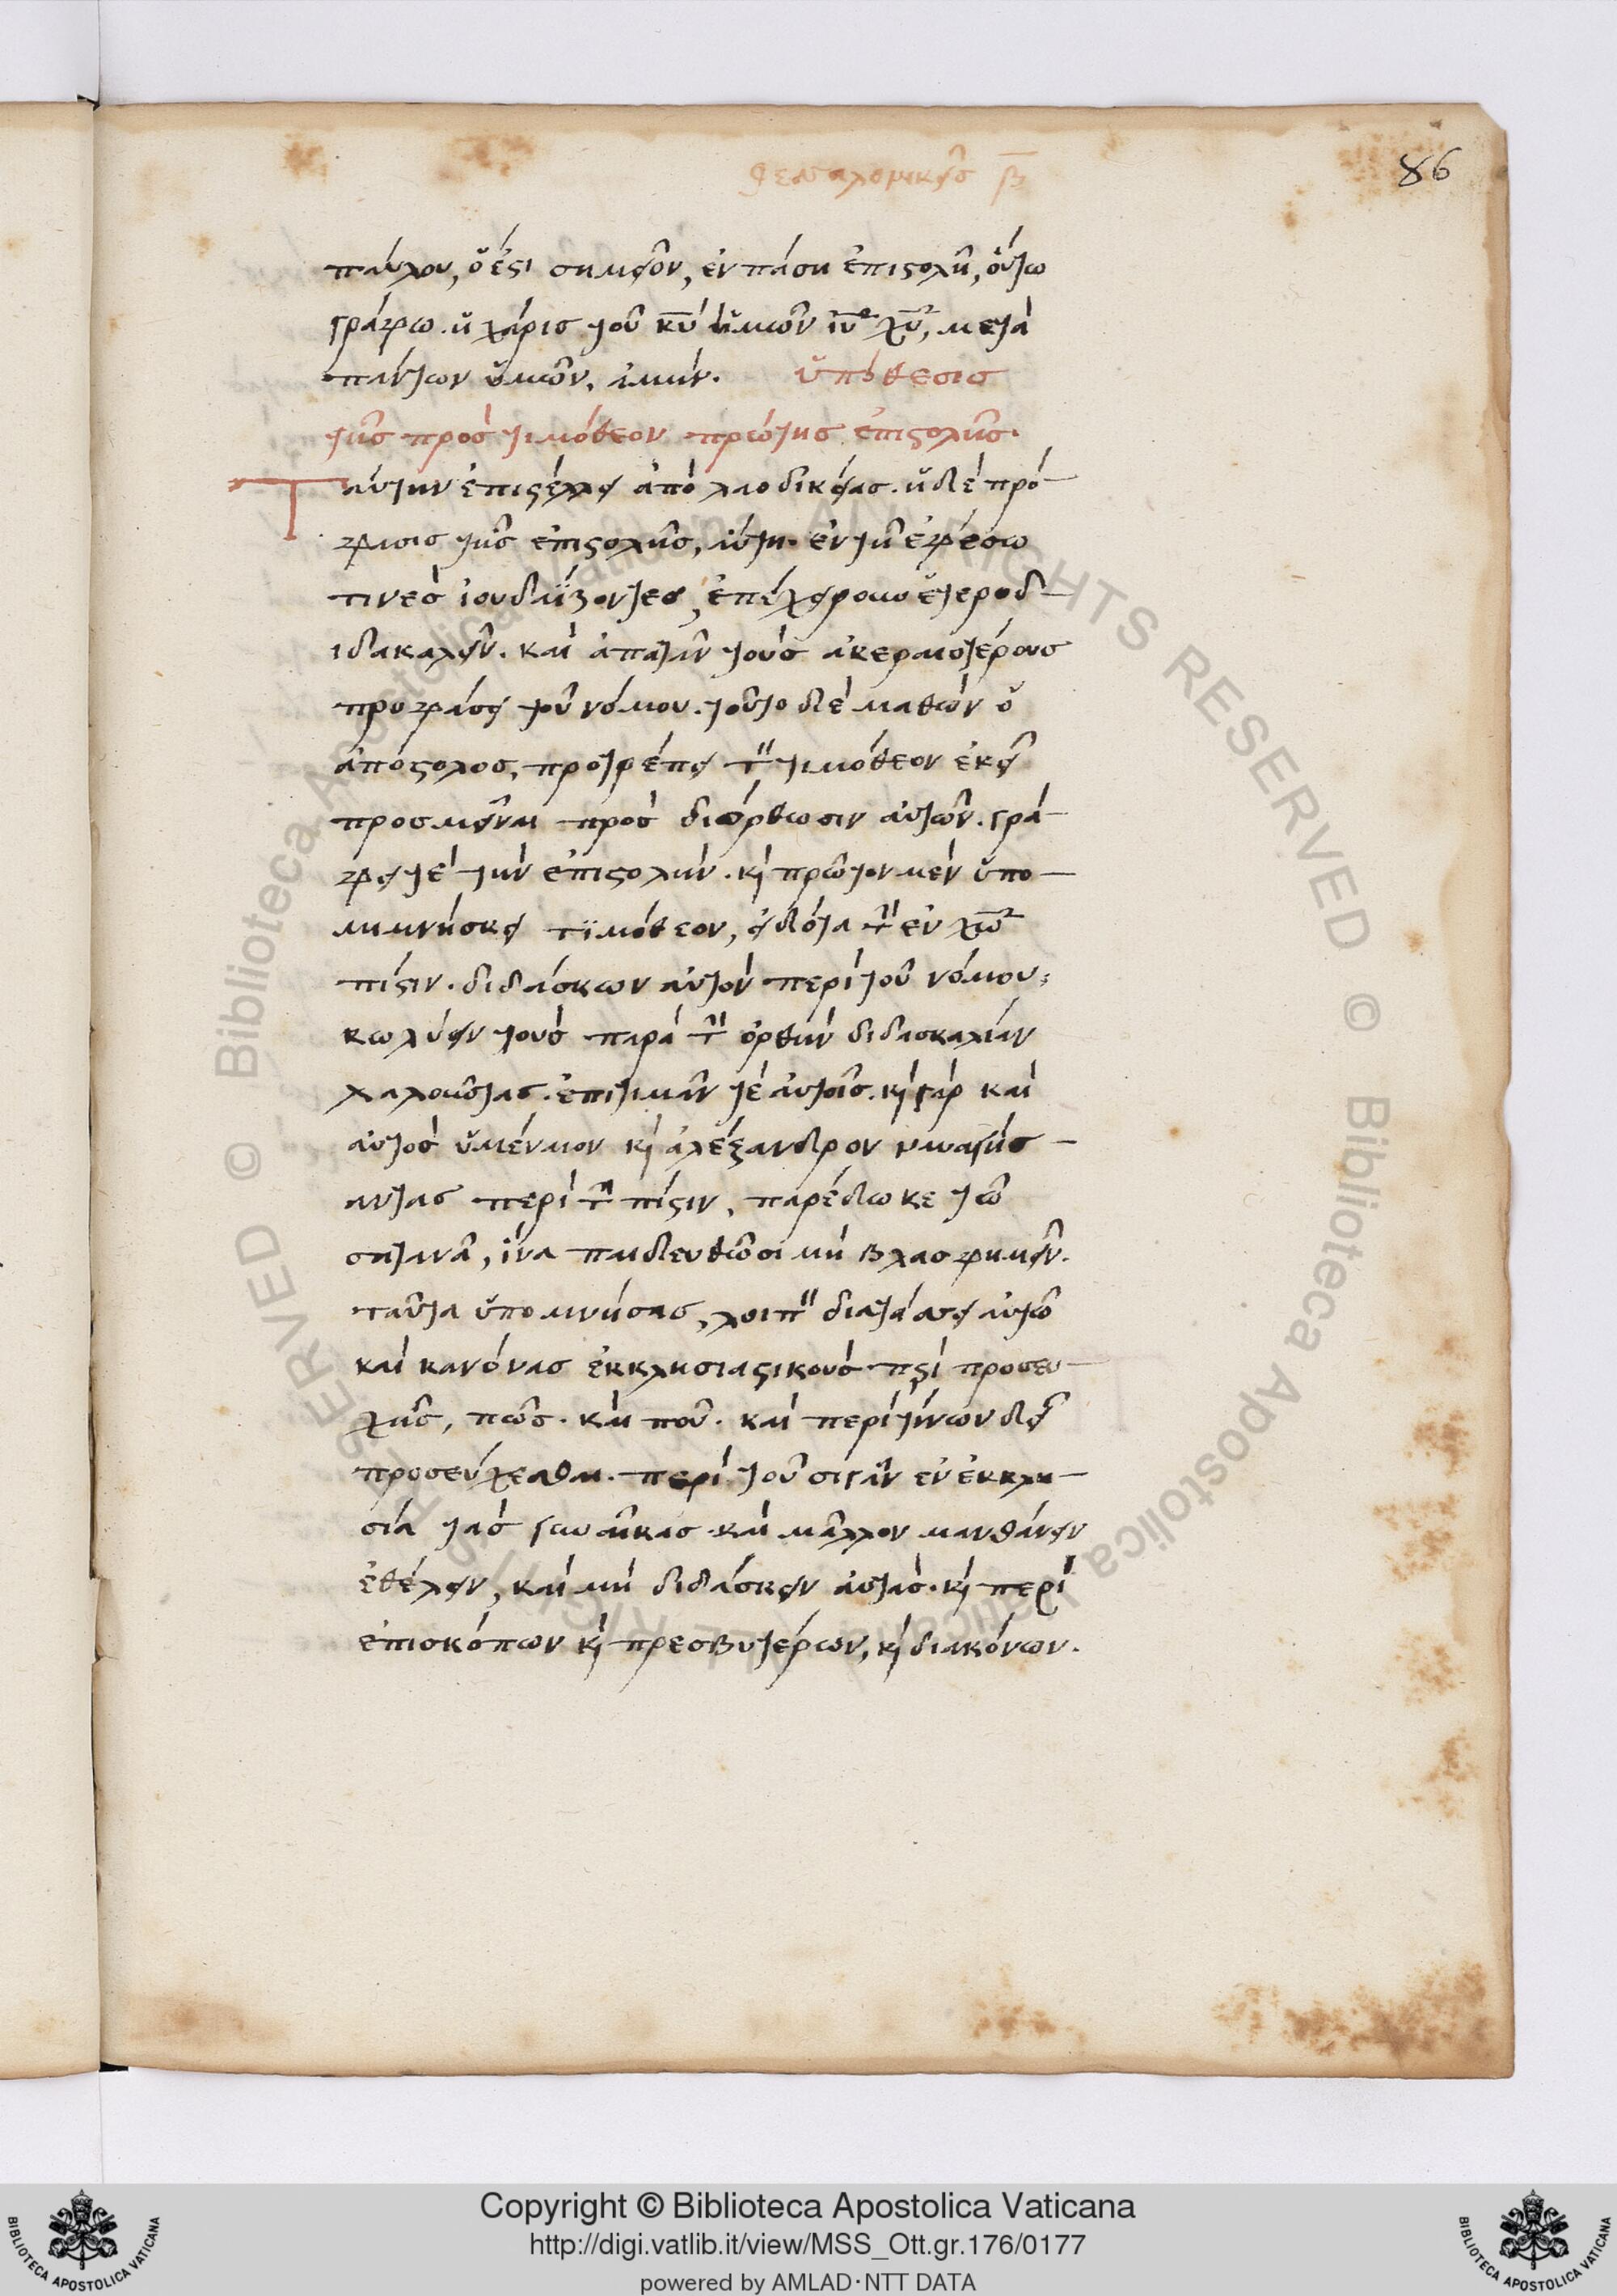 θεσσαλονικεῖς β
86
παύλου, ὅ ἐστι σημεῖον, ἐν πάσῃ ἐπιστολῇ, οὕτω
γράφω. ἡ χάρις τοῦ κυ ἡμῶν ιυ χυ, μετὰ
πάντων ὑμῶν, ἀμήν. ὑπόθεσις
τῆς πρὸς τιμόθεον πρώτης ἐπιστολῆς.
Ταύτην ἐπιστέλλει ἀπὸ λαοδικείας. ἡ δὲ πρό-
φασις τῆς ἐπιστολῆς, αὕτη. ἐν τῇ ἐφέσω
τινὲς ἰουδαΐζοντες, ἐπέχειρουν ἑτεροδ-
ιδακαλεῖν. καὶ ἀπατᾶν τοὺς ἀκεραιοτέρους
προφάσει τοῦ νόμου. τοῦτο δὲ μαθὼν ὁ
ἀπόστολος, προτρέπει τὸν τιμόθεον ἐκεῖ
προσμεῖναι πρὸς διόρθωσιν αὐτῶν. γρά-
φει τὲ τὴν ἐπιστολήν. κὶ πρῶτον μὲν ὑπο-
μιμνήσκει τϊμόθεον, εἰδότα τὴν ἐν χω
πίστιν. διδάσκων αὐτὸν περὶ τοῦ νόμου.
κωλύειν τοὺς παρὰ τὴν ὀρθὴν διδασκαλίαν
λαλοῦντας. ἐπιτιμᾶν τὲ αὐτοῖς. κὶ γὰρ καὶ
αὐτὸς ὑμέναιον κὶ ἀλέξανδρον ναυαγήσ-
αντας περὶ τὴν πίστιν, παρέδωκε τῶ
σατανᾶ, ἵνα παιδευθῶσι μὴ βλασφημεῖν.
ταῦτα ὑπομνήσας, λοιπὸν διατάσσει αὐτῶ
καὶ κανόνας ἐκκλησιαστικοὺς περὶ προσευ-
χῆς, πῶς. καὶ ποῦ. καὶ περὶ τίνων δεῖ
προσεύχεσθαι. περὶ τοῦ σιγᾶν ἐν ἐκκλη-
σία τὰς γυναῖκας καὶ μᾶλλον μανθάνειν
ἐθέλειν, καὶ μὴ διδάσκειν αὐτάς. κὶ περὶ
ἐπισκόπων κὶ πρεσβυτέρων, κὶ διακόνων.
© Biblioteca Apostolica Vaticana ALL RIGHTS RESERVED
© Biblioteca Apostolica Vaticana ALL RIGHTS RESERVED
BIBLIOTECA APOSTOLICA VATICANA
Copyright © Biblioteca Apostolica Vaticana
http://digi.vatlib.it/view/MSS_Ott.gr.176/0177
powered by AMLAD·NTT DATA
BIBLIOTECA APOSTOLICA VATICANA